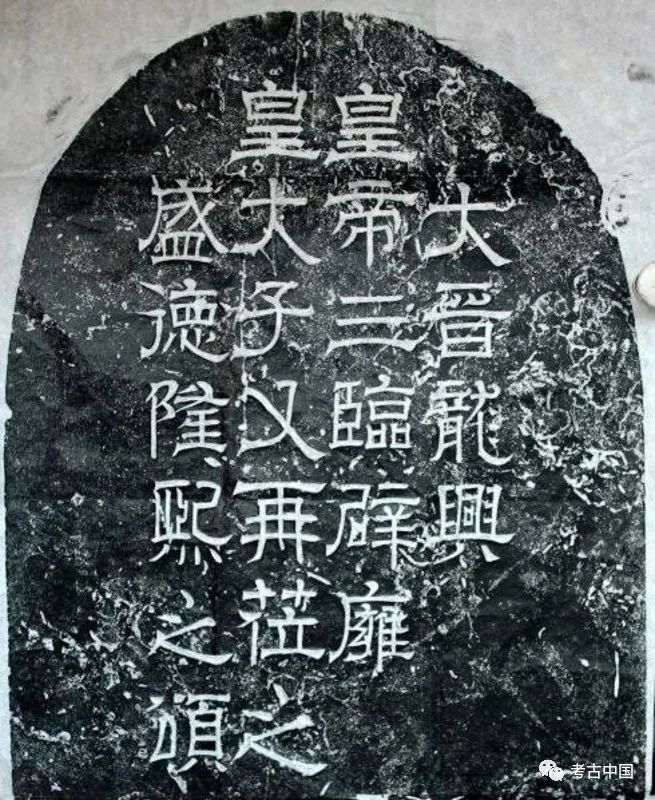 大晉龍興
皇帝三臨辟廱
皇大子又再莅之
盛德隆熙之頌
考古中国